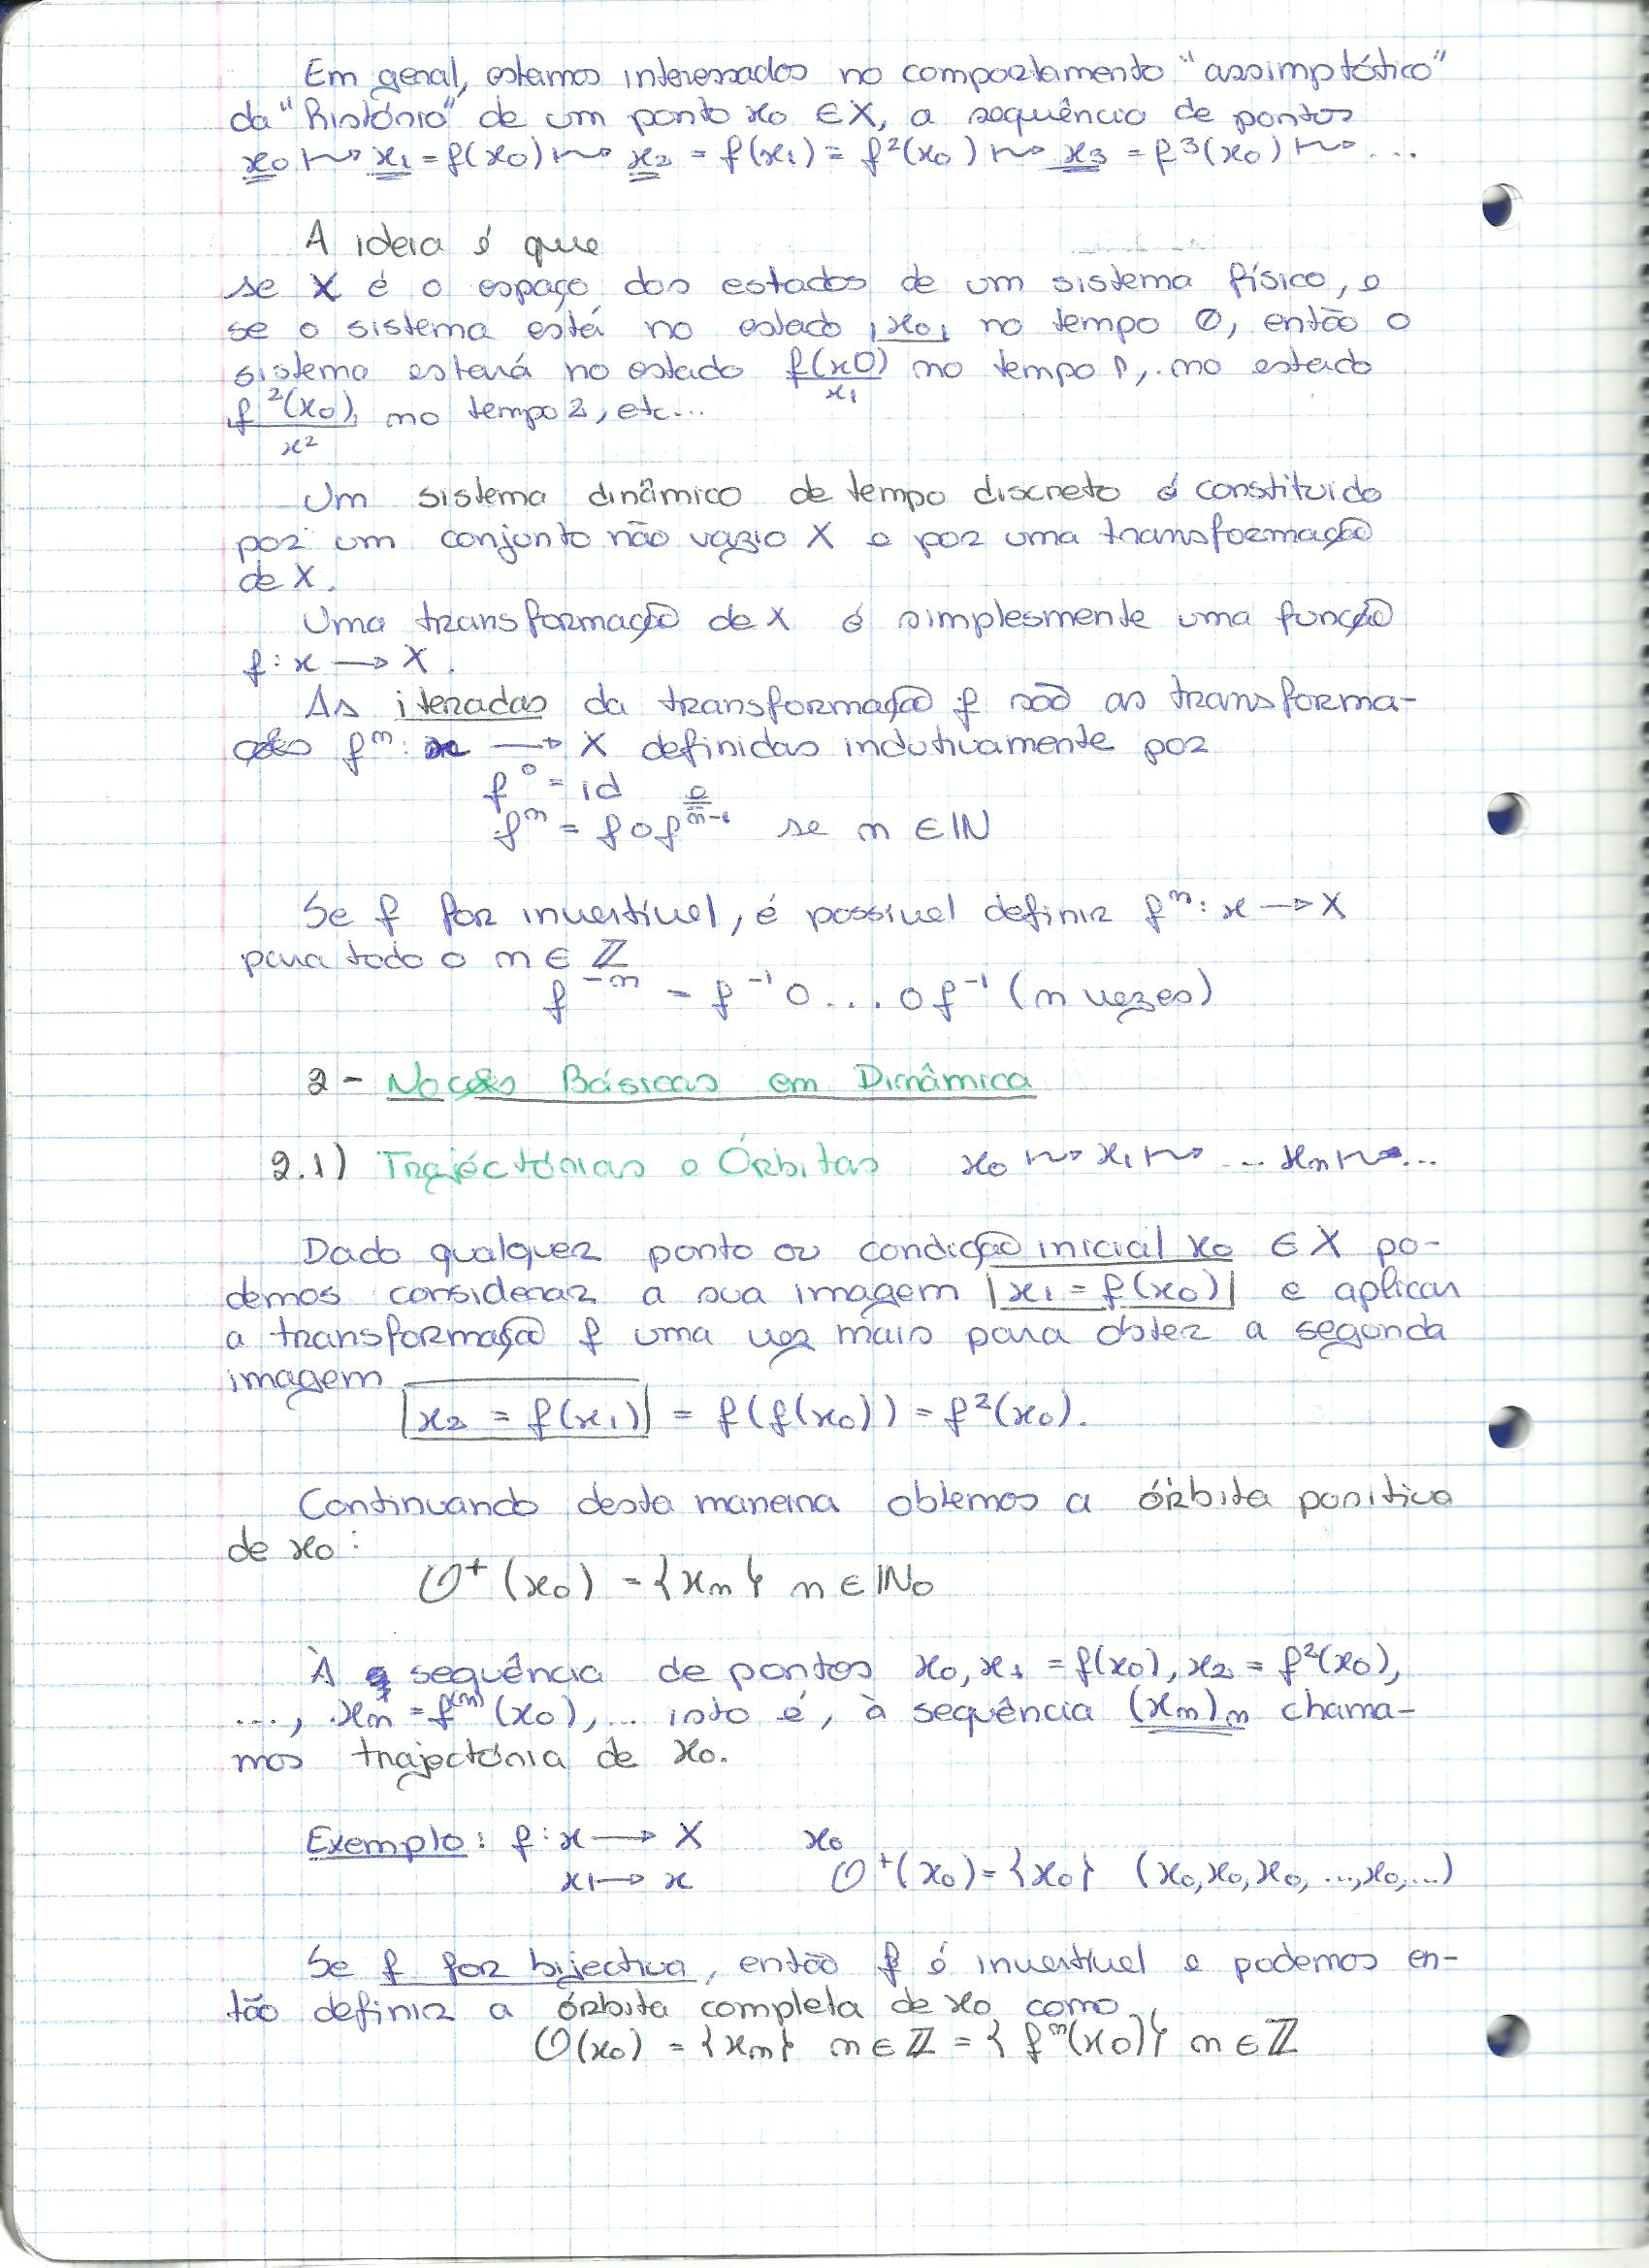 Em geral, estamos interessados no comportamento "assimptótico"
da "história" de um ponto x₀ ∈ X, a sequência de pontos
x₀ ↦ x₁ = f(x₀) ↦ x₂ = f(x₁) = f²(x₀) ↦ x₃ = f³(x₀) ↦ ...
A ideia é que
se X é o espaço dos estados de um sistema físico, e
se o sistema está no estado x₀, no tempo 0, então o
sistema estará no estado f(x0) no tempo 1, no estado
x₁
f²(x₀), no tempo 2, etc...
x²
Um sistema dinâmico de tempo discreto é constituído
por um conjunto não vazio X e por uma transformação
de X.
Uma transformação de X é simplesmente uma função
f: x → X.
As iteradas da transformação f são as transforma-
ções fⁿ: x → X definidas indutivamente por
f⁰ = id e
fⁿ = f o fⁿ⁻¹ se n ∈ IN
Se f for invertível, é possível definir fⁿ: x → X
para todo o n ∈ ℤ
f⁻ⁿ = f⁻¹ o ... o f⁻¹ (n vezes)
2 - Noções Básicas em Dinâmica
2.1) Trajéctórias e Órbitas x₀ ↦ x₁ ↦ ... xₙ ↦ ...
Dado qualquer ponto ou condição inicial x₀ ∈ X po-
demos considerar a sua imagem |x₁ = f(x₀)| e aplicar
a transformação f uma vez mais para obter a segunda
imagem
|x₂ = f(x₁)| = f(f(x₀)) = f²(x₀).
Continuando desta maneira obtemos a órbita positiva
de x₀:
O⁺(x₀) = {xₙ} n ∈ IN₀
À sequência de pontos x₀, x₁ = f(x₀), x₂ = f²(x₀),
..., xₙ = f⁽ⁿ⁾(x₀), ... isto é, à sequência (xₙ)ₙ chama-
mos trajectória de x₀.
Exemplo: f: x → X x₀
x ↦ x O⁺(x₀) = {x₀} (x₀, x₀, x₀, ..., x₀, ...)
Se f for bijectiva, então f é invertível e podemos en-
tão definir a órbita completa de x₀ como
O(x₀) = {xₙ} n ∈ ℤ = {fⁿ(x₀)} n ∈ ℤ